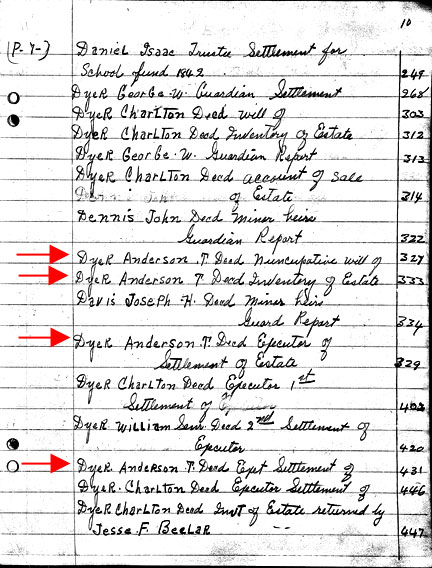 10
(P-Y-) Daniel Isaac Trustee Settlement for
School fund 1842 249
Dyer George W. Guardian Settlement 268
Dyer Charlton Decd will of 303
Dyer Charlton Decd Inventory of Estate 312
Dyer George W Guardian Report 313
Dyer Charlton Decd account of Sale
of Estate 314
Dennis John Decd Miner heirs
Guardian Report 322
Dyer Anderson T Decd Nuncupative will of 327
Dyer Anderson T Decd Inventory of Estate 333
Davis Joseph H. Decd Miner heirs
Guard Report 334
Dyer Anderson T. Decd Executor of
Settlement of Estate 329
Dyer Charlton Decd Executor 1st
Settlement of 402
Dyer William Senr Decd 2nd Settlement of
Executor 420
Dyer Anderson T. Decd Exet Settlement of 431
Dyer Charlton Decd Executor Settlement of 446
Dyer Charlton Decd Invt of Estate returned by
Jesse F. Beelar -- 447